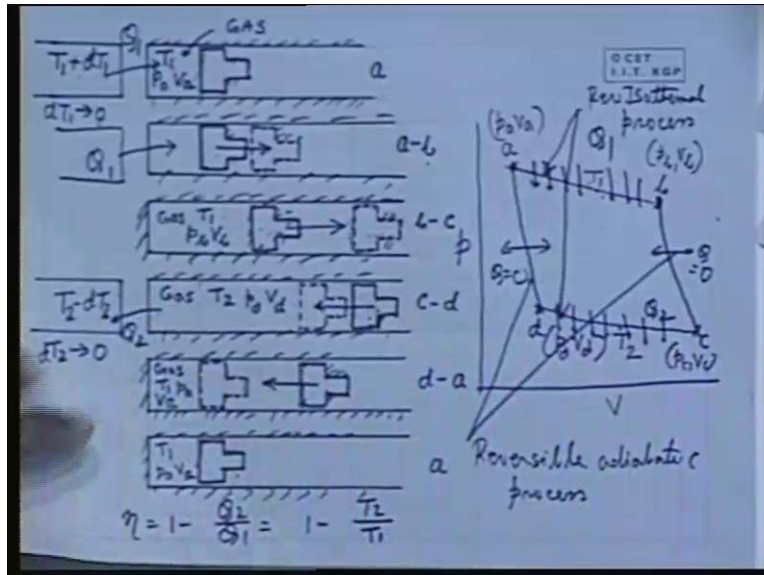 Q1
GAS
T1+dT1
T1
pa Va
a
dT1→0
Q1
a-b
Gas T1
pb Vb
b-c
T2-dT2
Gas T2 pd Vd
c-d
Q2
dT2→0
Gas
T1 pa
Va
d-a
T1
pa Va
a
η = 1 - Q2/Q1 = 1 - T2/T1
© CET
I.I.T. KGP
Rev Isothermal
process
(pa Va)
a
Q1
(pb, Vb)
T1
b
p
Q=0
Q
=0
d
Q2
c
(pd Vd)
T2
(pc, Vc)
V
Reversible adiabatic
process